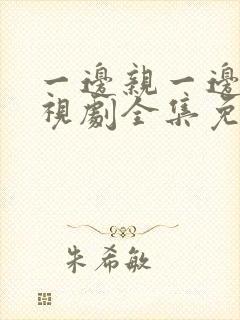 一邊親一邊
視劇全集免
朱希敏